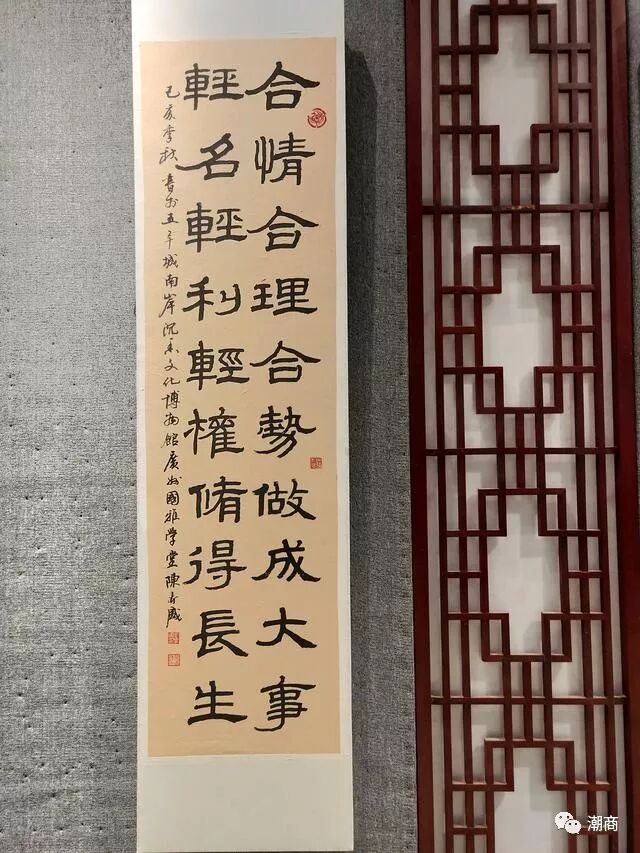 合情合理合勢做成大事
輕名輕利輕權脩得長生
己亥季秋書於五羊城南岸沉香文化博物館廣州國雅學堂陳壽盛
潮商